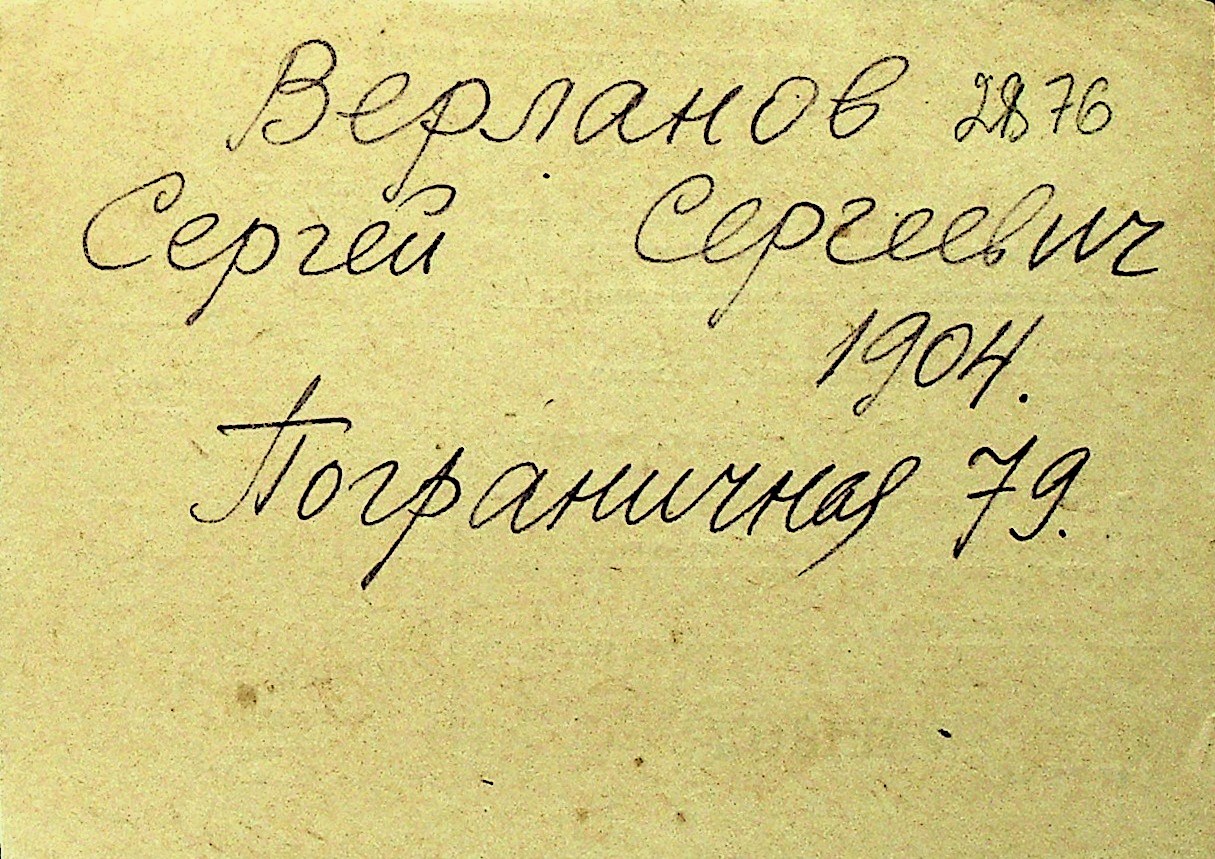 Верланов 2876
Сергей Сергеевич
1904.
Пограничная 79.